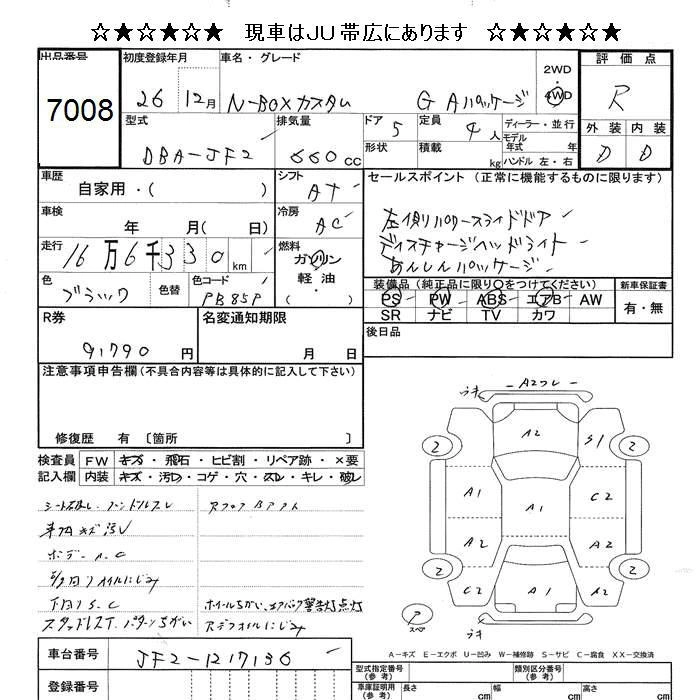 ☆★☆★☆★ 現車はJU帯広にあります ☆★☆★☆★
出品番号
7008
初度登録年月
26 12月
車名・グレード
N-BOXカスタム G Aパッケージ
2WD
4WD
評価点
R
外装 内装
D D
型式
DBA-JF2
排気量
660cc
ドア 5
形状
定員 4人
積載 kg
ディーラー・並行
モデル
年式 年
ハンドル 左・右
車歴
自家用・( )
シフト
AT
車検
年 月( 日)
冷房
AC
走行
16万6千330km
燃料
ガソリン
軽油
・
色
ブラック
色替
色コード
PB85P
セールスポイント(正常に機能するものに限ります)
左側パワースライドドア
ディスチャージヘッドライト
あんしんパッケージ
装備品(純正品に限り○をつけてください)
PS PW ABS エアB AW
SR ナビ TV カワ
新車保証書
有・無
後日品
R券
91790円
名変通知期限
月 日
注意事項申告欄(不具合内容等は具体的に記入して下さい)
修復歴 有〔箇所 〕
検査員
記入欄
FW キズ・飛石・ヒビ割・リペア跡・×要
内装 キズ・汚れ・コゲ・穴・スレ・キレ・破レ
ボデーA.C
下回りS.C
スタッドレスT. パターンちがい
ホイールちがい、エアバック警告灯点灯
Rデフオイルにじみ
車台番号
JF2-1217136
登録番号
うキ
A2フレ
A2
S1
2
2
A1
A1
C2
A2
A2
2
2
C2
A1
C2
うキ
ア
スペア
A−キズ E−エクボ U−凹み W−補修跡 S−サビ C−腐食 XX−交換済
型式指定番号
(参考)
類別区分番号
(参考)
車庫証明用
(参考)
長さ cm
幅 cm
高さ cm